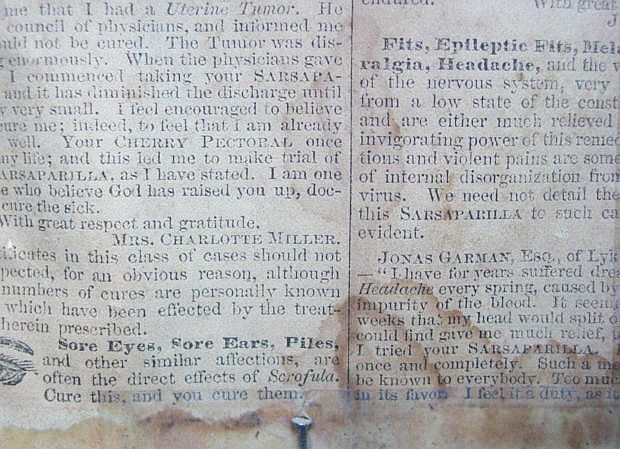 me that I had a Uterine Tumor. He
council of physicians, and informed me
could not be cured. The Tumor was dis-
enormously. When the physicians gave
I commenced taking your SARSAPA-
and it has diminished the discharge until
very small. I feel encouraged to believe
cure me; indeed, to feel that I am already
well. Your CHERRY PECTORAL once
my life; and this led me to make trial of
ARSAPARILLA, as I have stated. I am one
e who believe God has raised you up, doc-
cure the sick.
With great respect and gratitude.
MRS. CHARLOTTE MILLER.
tificates in this class of cases should not
pected, for an obvious reason, although
numbers of cures are personally known
which have been effected by the treat-
herein prescribed.
Sore Eyes, Sore Ears, Piles,
and other similar affections, are
often the direct effects of Scrofula.
Cure this, and you cure them.
endured.
With great
J
Fits, Epileptic Fits, Mela
ralgia, Headache, and the v
of the nervous system, very
from a low state of the const
and are either much relieved
invigorating power of this remed
tions and violent pains are some
of internal disorganization from
virus. We need not detail the
this SARSAPARILLA to such ca
evident.
JONAS GARMAN, ESQ., of Lyk
—"I have for years suffered dre
Headache every spring, caused by
impurity of the blood. It seem
weeks that my head would split o
could find gave me much relief, u
I tried your SARSAPARILLA. I
once and completely. Such a me
be known to everybody. Too muc
in its favor. I feel it a duty, as it